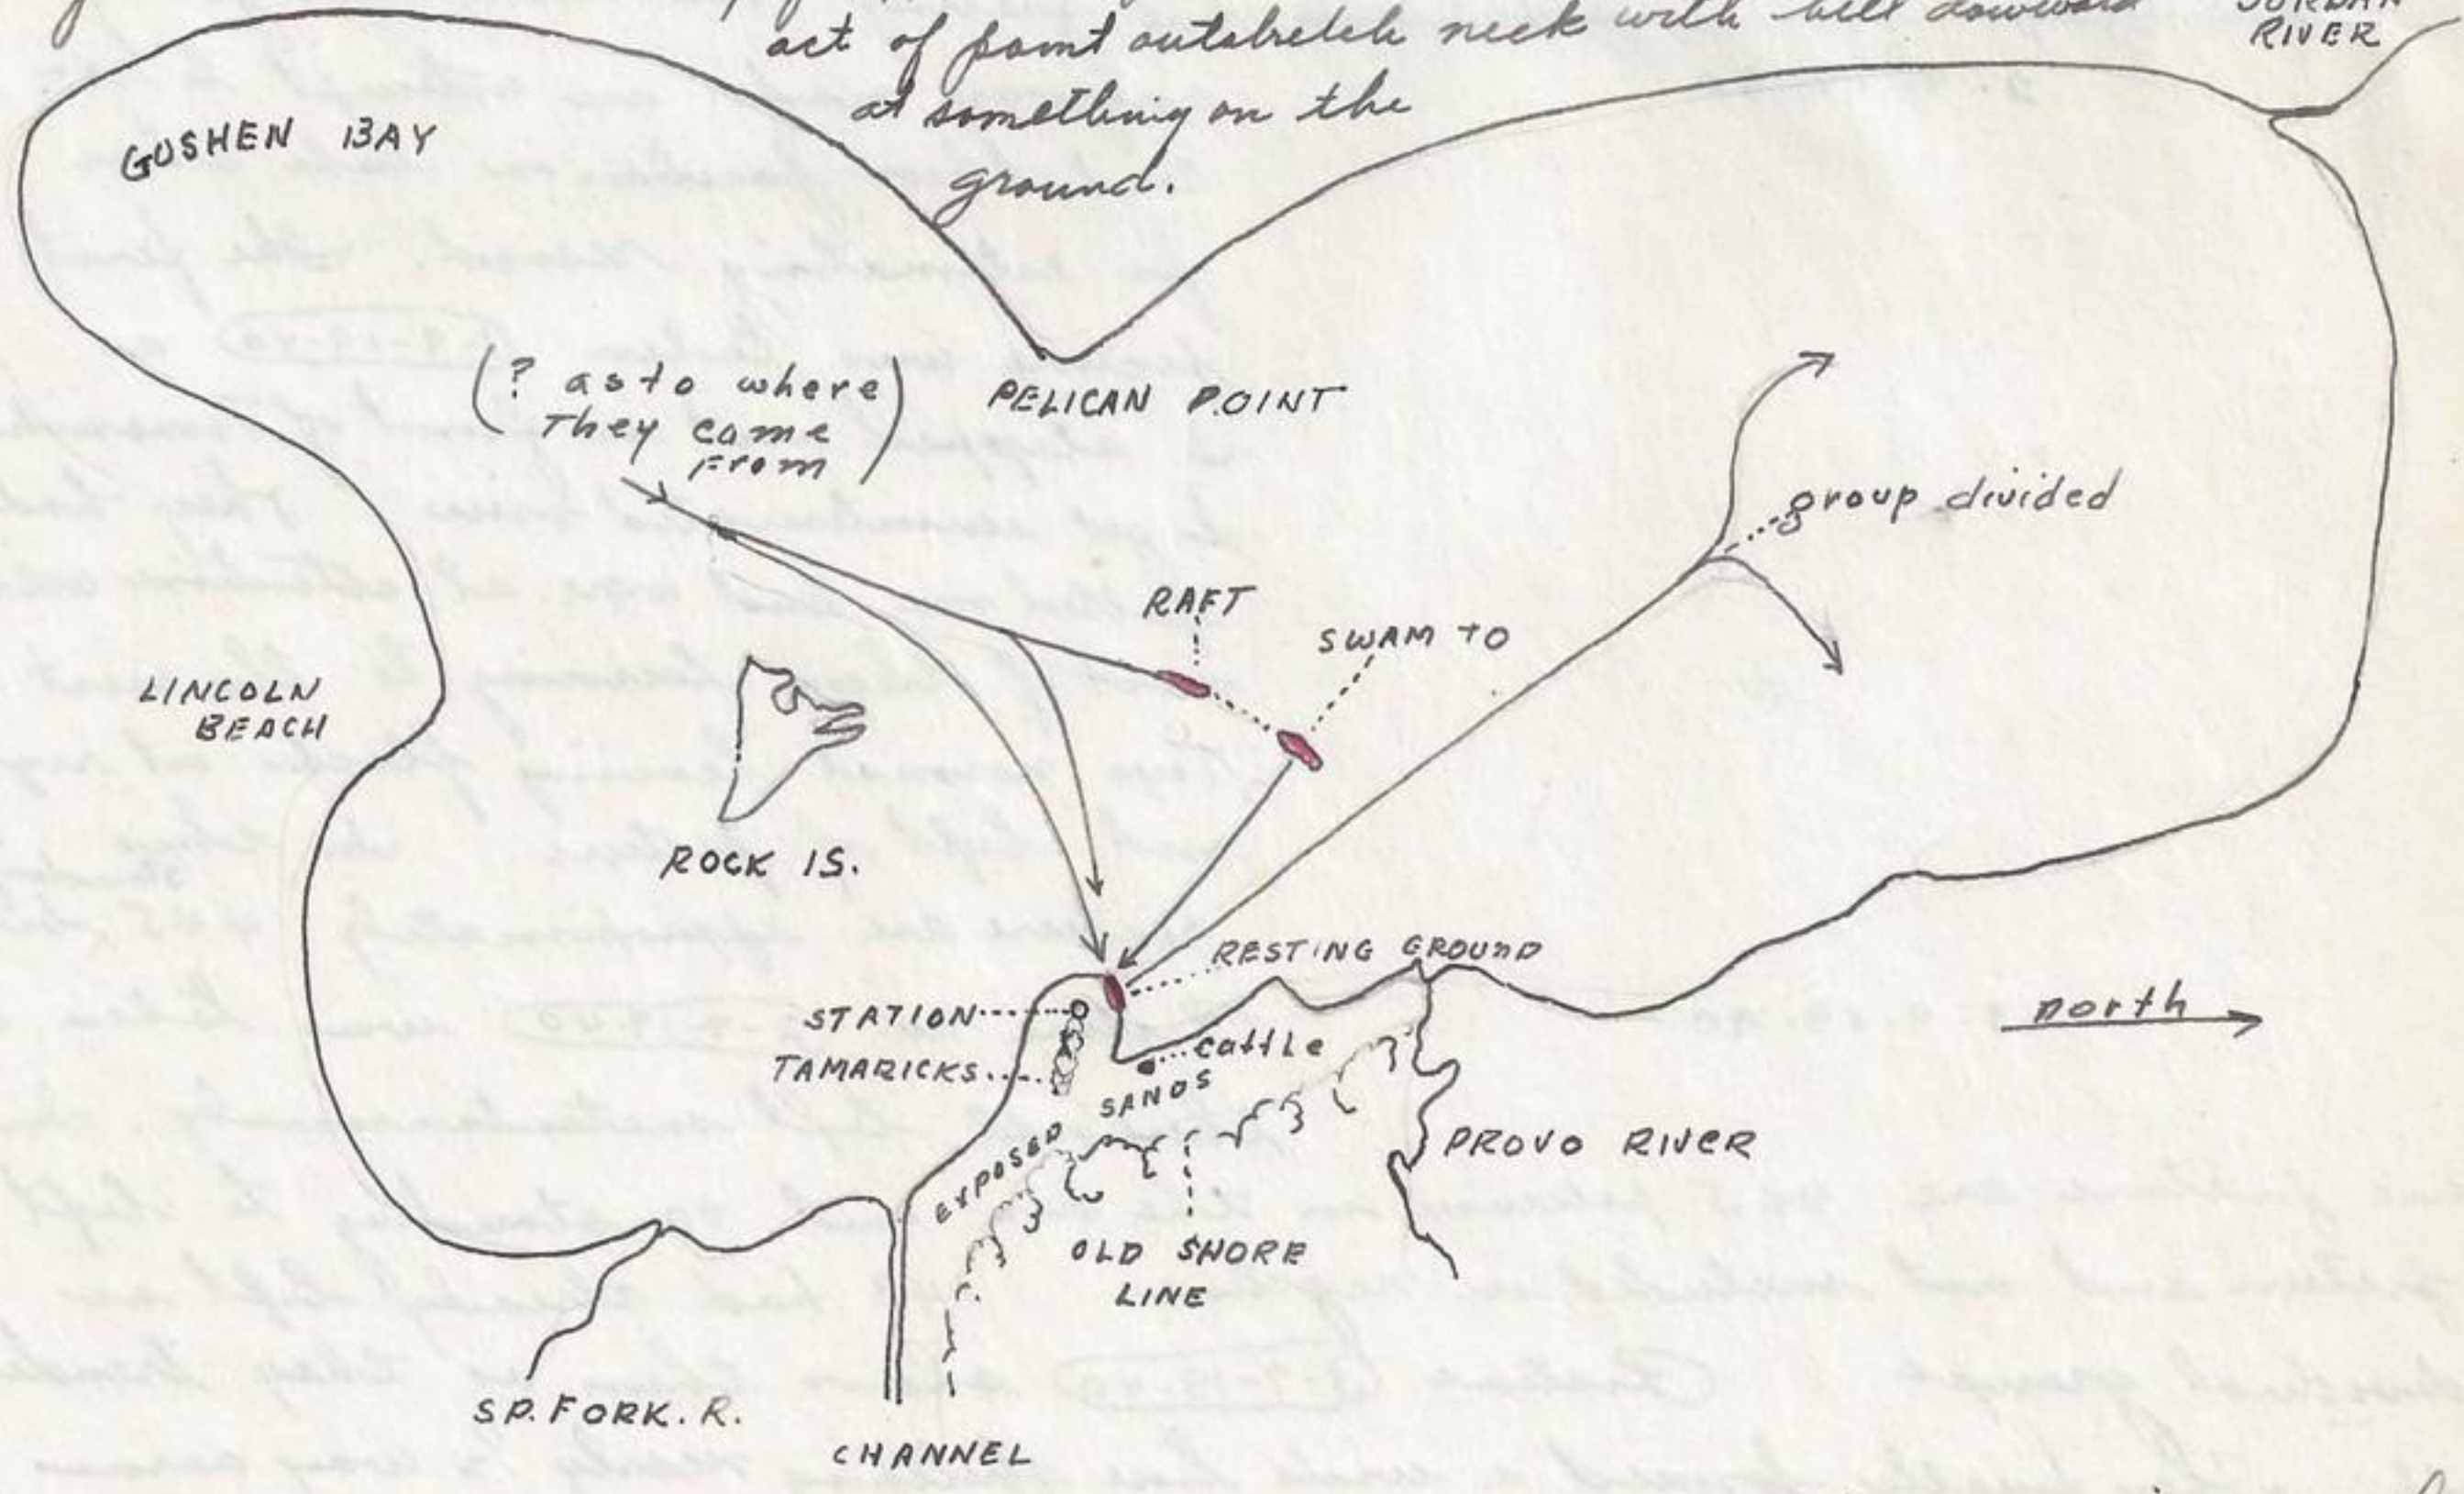 act of point outstretch neck with bill downward
at something on the
ground.
JORDAN
RIVER
GOSHEN BAY
(? as to where)
They came
From
PELICAN POINT
group divided
RAFT
SWAM TO
LINCOLN
BEACH
ROCK IS.
RESTING GROUND
STATION
TAMARICKS
cattle
EXPOSED SANDS
north
PROVO RIVER
OLD SHORE
LINE
SP. FORK. R.
CHANNEL